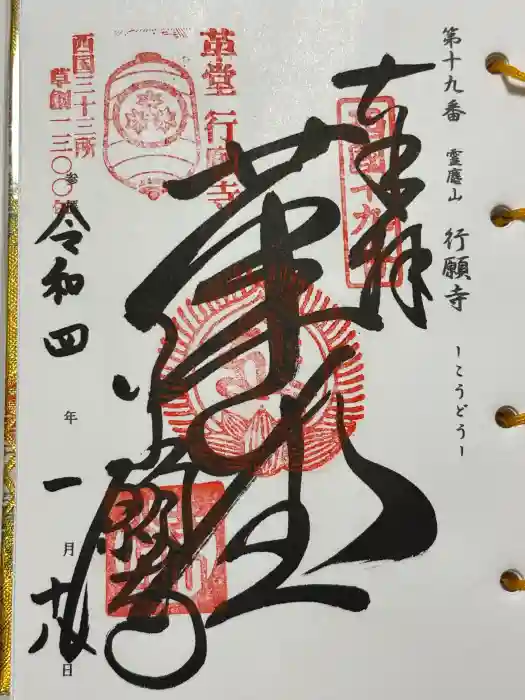 第十九番 霊應山 行願寺 ーこうどうー
奉拝
西国十九番
革堂
行願寺
革堂 行願寺
西国三十三所
草創一三〇〇年
参拝
令和四年一月廿八日